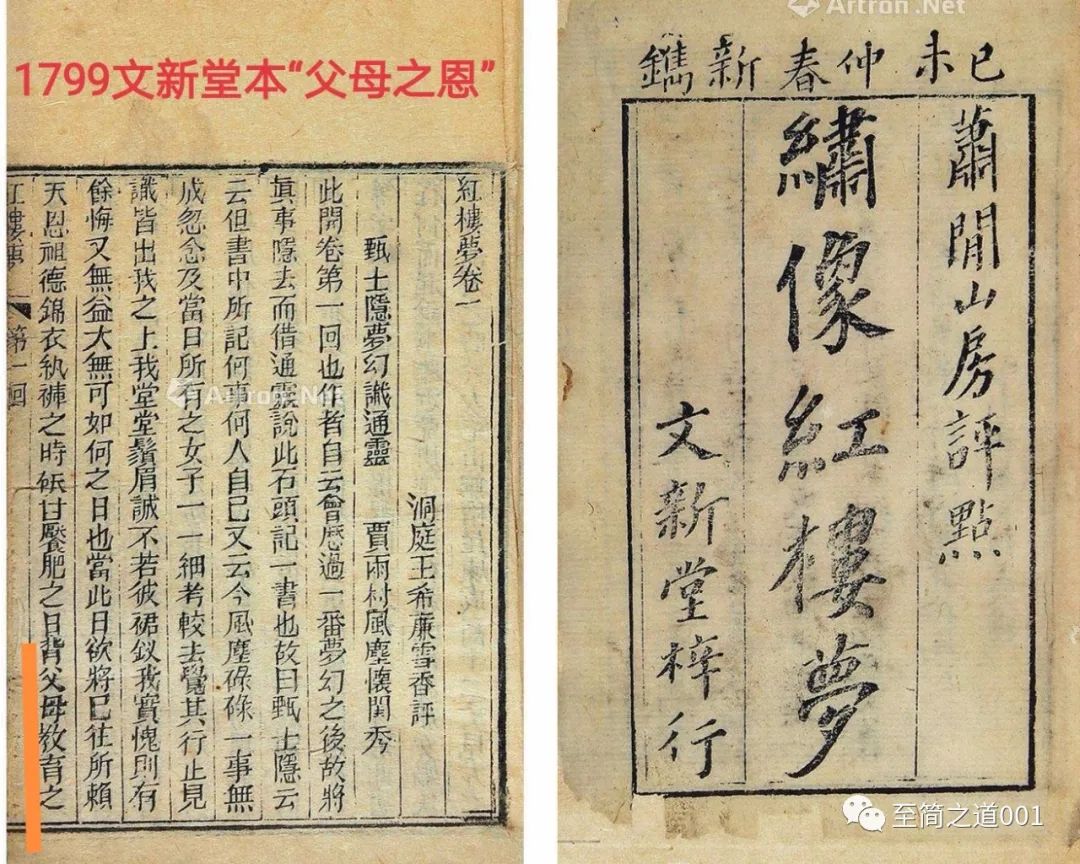 1799文新堂本“父母之恩”
紅樓夢卷一
洞庭王希廉雪香評
甄士隱夢幻識通靈 賈雨村風塵懷閨秀
此開卷第一回也作者自云曾厯過一番夢幻之後故將
眞事隱去而借通靈說此石頭記一書也故曰甄士隱云
云但書中所記何事何人自己又云今風塵碌碌一事無
成忽念及當日所有之女子一一細考較去覺其行止見
識皆出我之上我堂堂鬚眉誠不若彼裙釵我實愧則有
餘悔又無益大無可如何之日也當此日欲將已往所賴
天恩祖德錦衣紈褲之時飫甘饜肥之日背父母教育之
紅樓夢 第一回
Artron.Net
Artron.Net
己未仲春新鐫
蕭閒山房評點
繡像紅樓夢
文新堂梓行
至简之道001